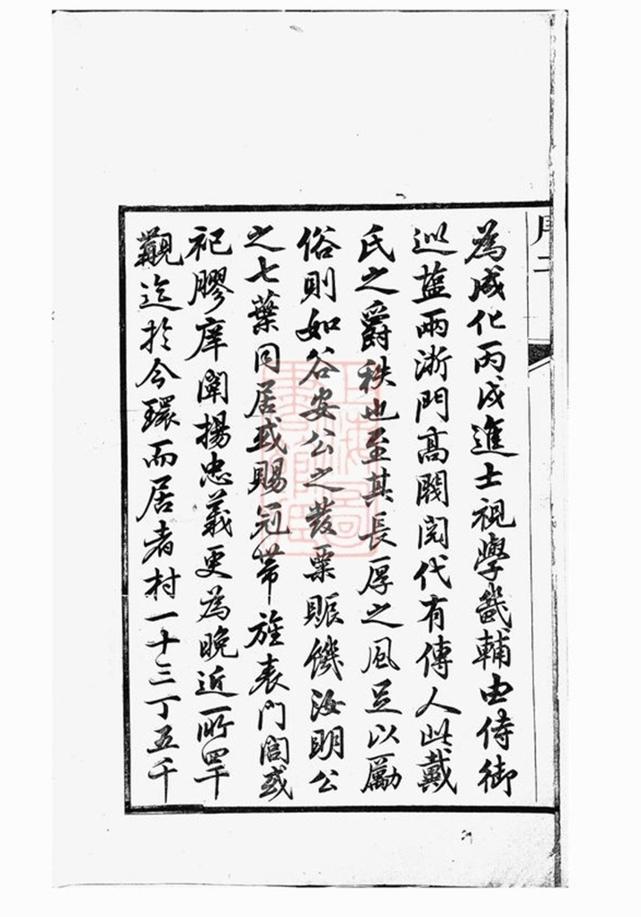 序二
為成化丙戌進士視學畿輔由侍御
巡藍兩浙門高閥閱代有傳人此戴
氏之爵秩也至其長厚之風足以勵
俗則如谷安公之發粟賑饑汝明公
之七葉同居或賜冠帶旌表門閭或
祀膠庠闡揚忠義更為晚近所罕
觀迄於今環而居者村一十三丁五千